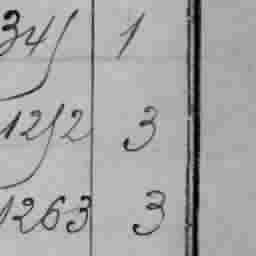 34 1
1212 3
1263 3